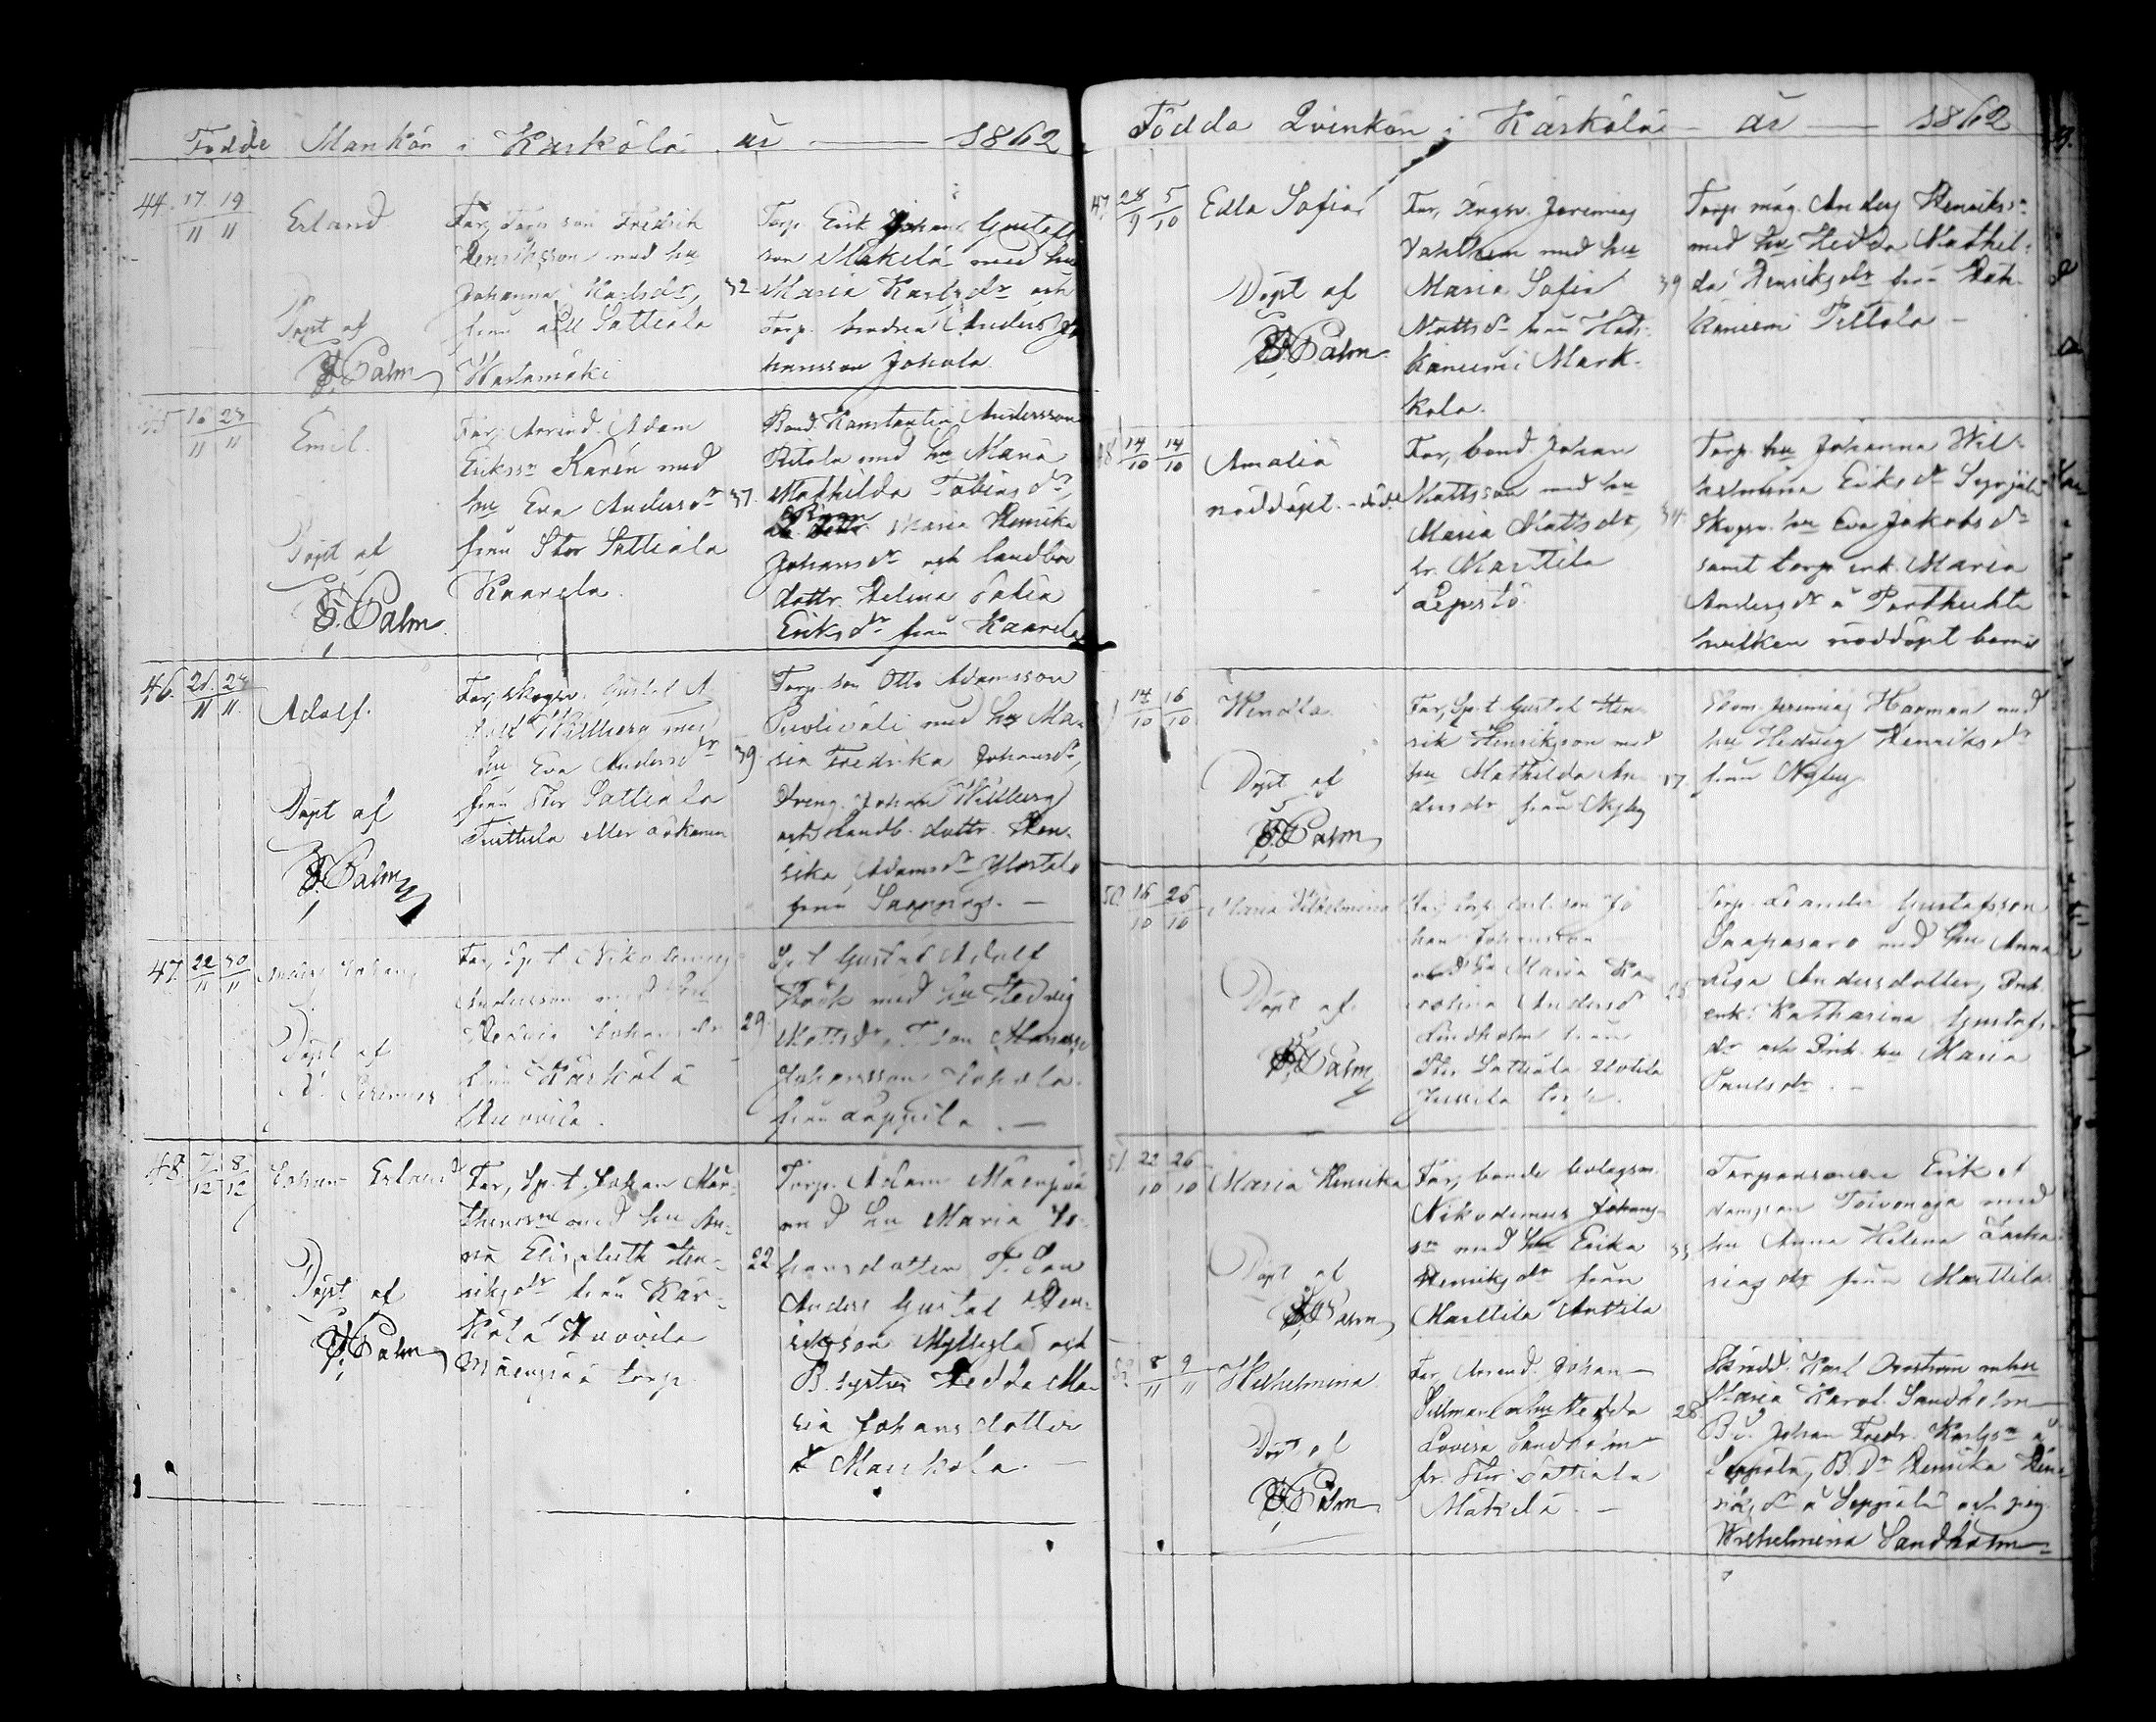 Födde Mankön i Kärkölä år — 1862
44. 17/11 19/11
Erland
Döpt af
Palm
Far, Torp son Fredrik
Henriksson med hu
Johanna Karlsdr,
från Lill Sattiala
Wadamäki
32
Torp. Erik Johan Gustafs
son Mäkelä med hu
Maria Karlsdr och
Torp. Anders Jo
hansson Johola
45 16/11 23/11
Emil.
Döpt af
Palm
Far, Arend. Adam
Erikssn Karén med
hu Eva Andersdr
från Stor Sattiala
Kaarela.
37.
Bond. Konstantin Andersson
Pitola med hu Maria
Mathilda Tobiasdr,
Maria Henrika
Johansdr och landbo
dottr. Helena Sofia
Eriksdr från Kaarela
46. 21/11 23/11.
Adolf.
Döpt af
Palm
Far, Skogsv. Gustaf A
dolf Willberg med
hu Eva Andersdr
från Stor Sattiala
39
Torp. son Otto Adamsson
med hu Ma-
ria Fredrika Johansdr,
Dreng. Johan Willberg
och Landb. dottr. Hen-
rika Adamsdr
från
47. 22/11 30/11
Döpt af
Far, Sp-t. Nikodemus
Andersson med hu
Hedvig Johansdr
från Kärkölä
Huovila.
29.
Sp-t Gustaf Adolf
Köök med hu Hedvig
Mattsdr,
Johansson
från Lappila. —
48. 7/12 8/12
Johan Erland
Döpt af
Palm
Far, Sp-t. Johan Mar-
med hu An-
na Elisabeth Hen-
riksdr från Kär-
kölä Huovila
Mäenpää torp.
22
Torp. Adam Mäenpää
med hu Maria Jo-
hansdotter, T. son
Anders Gustaf Hen-
riksson Myllylä och
B. syster Hedda Ma-
ria Johansdotter
Markola. —
Födda Qvinkön i Kärkölä — år — 1862
47. 28/9 5/10
Edla Sofia
Döpt af
Palm.
Far, Ängsv. Jeremias
Dahlbom med hu
Maria Sofia
Mattsdr från Hah-
kaniemi Mark-
kola.
39
Torp. måg. Anders Henrikssn
med hu Hedda Mathil-
da Henriksdr från Hah-
kaniemi Pettola —
48 14/10 14/10
Amalia
nöddöpt. - död.
Far, bond. Johan
Mattsson med hu
Maria Mattsdr,
fr. Marttila
Lepistö.
34
Torp. hu Johanna Wil-
helmina Eriksdr
Skogsv. hu Eva Jakobsdr
samt torp. enk. Maria
Andersdr
hvilken nöddöpt barnet
14/10 16/10
Wendla.
Döpt af
Palm
Far, Sp-t Gustaf Hen-
rik Henriksson med
hu Mathilda An-
dersdr från Nyby
27.
Skom. Jeremias Haxman med
hu Hedvig Henriksdr
från Nyby
50. 16/10 26/10
Maria Wilhelmina
Döpt af.
Palm
Far, Torp. son Jo
han Johansson
med hu Maria Ka-
rolina Andersdr
Lindholm från
Stor Sattiala Uotila
Jussila torp.
25
Torp. Leander Gustafsson
Saapasaro med hu Anna
Lisa Andersdotter,
enk. Katharina Gustafs-
dr och Inh. hu Maria
Paulsdr. —
51. 22/10 26/10
Maria Henrika
Döpt af
Palm
Far, bonde bolagsm.
Nikodemus Johans-
sn med hu Erika
Henriksdr från
Marttila Anttila
33
Torparsonen Erik A
damsson Toivonoja med
hu Anna Helena Zacha-
riasdr från Marttila.
52. 8/11 9/11
Wilhelmina.
Döpt af
Palm
Far, Arend. Johan
Sillman m hu Hedda
Lovisa Sandholm
fr. Stor Sattiala
Mäkelä. —
28
Skrädd. Karl Oxström m hu
Maria Karol. Sandholm
Johan Fredr. Karlssn
Seppälä, B. Dr Henrika Hen
riksdr å Seppälä och pig.
Wilhelmina Sandholm —